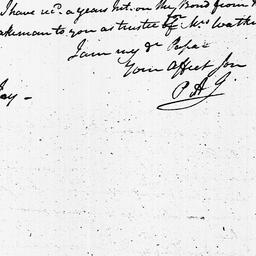 I have recd. a years Int. on my Bond from
akeman to you as trustee of Mrs Watki
I am my dr Papa
Your affect Son
P A J
Jay -